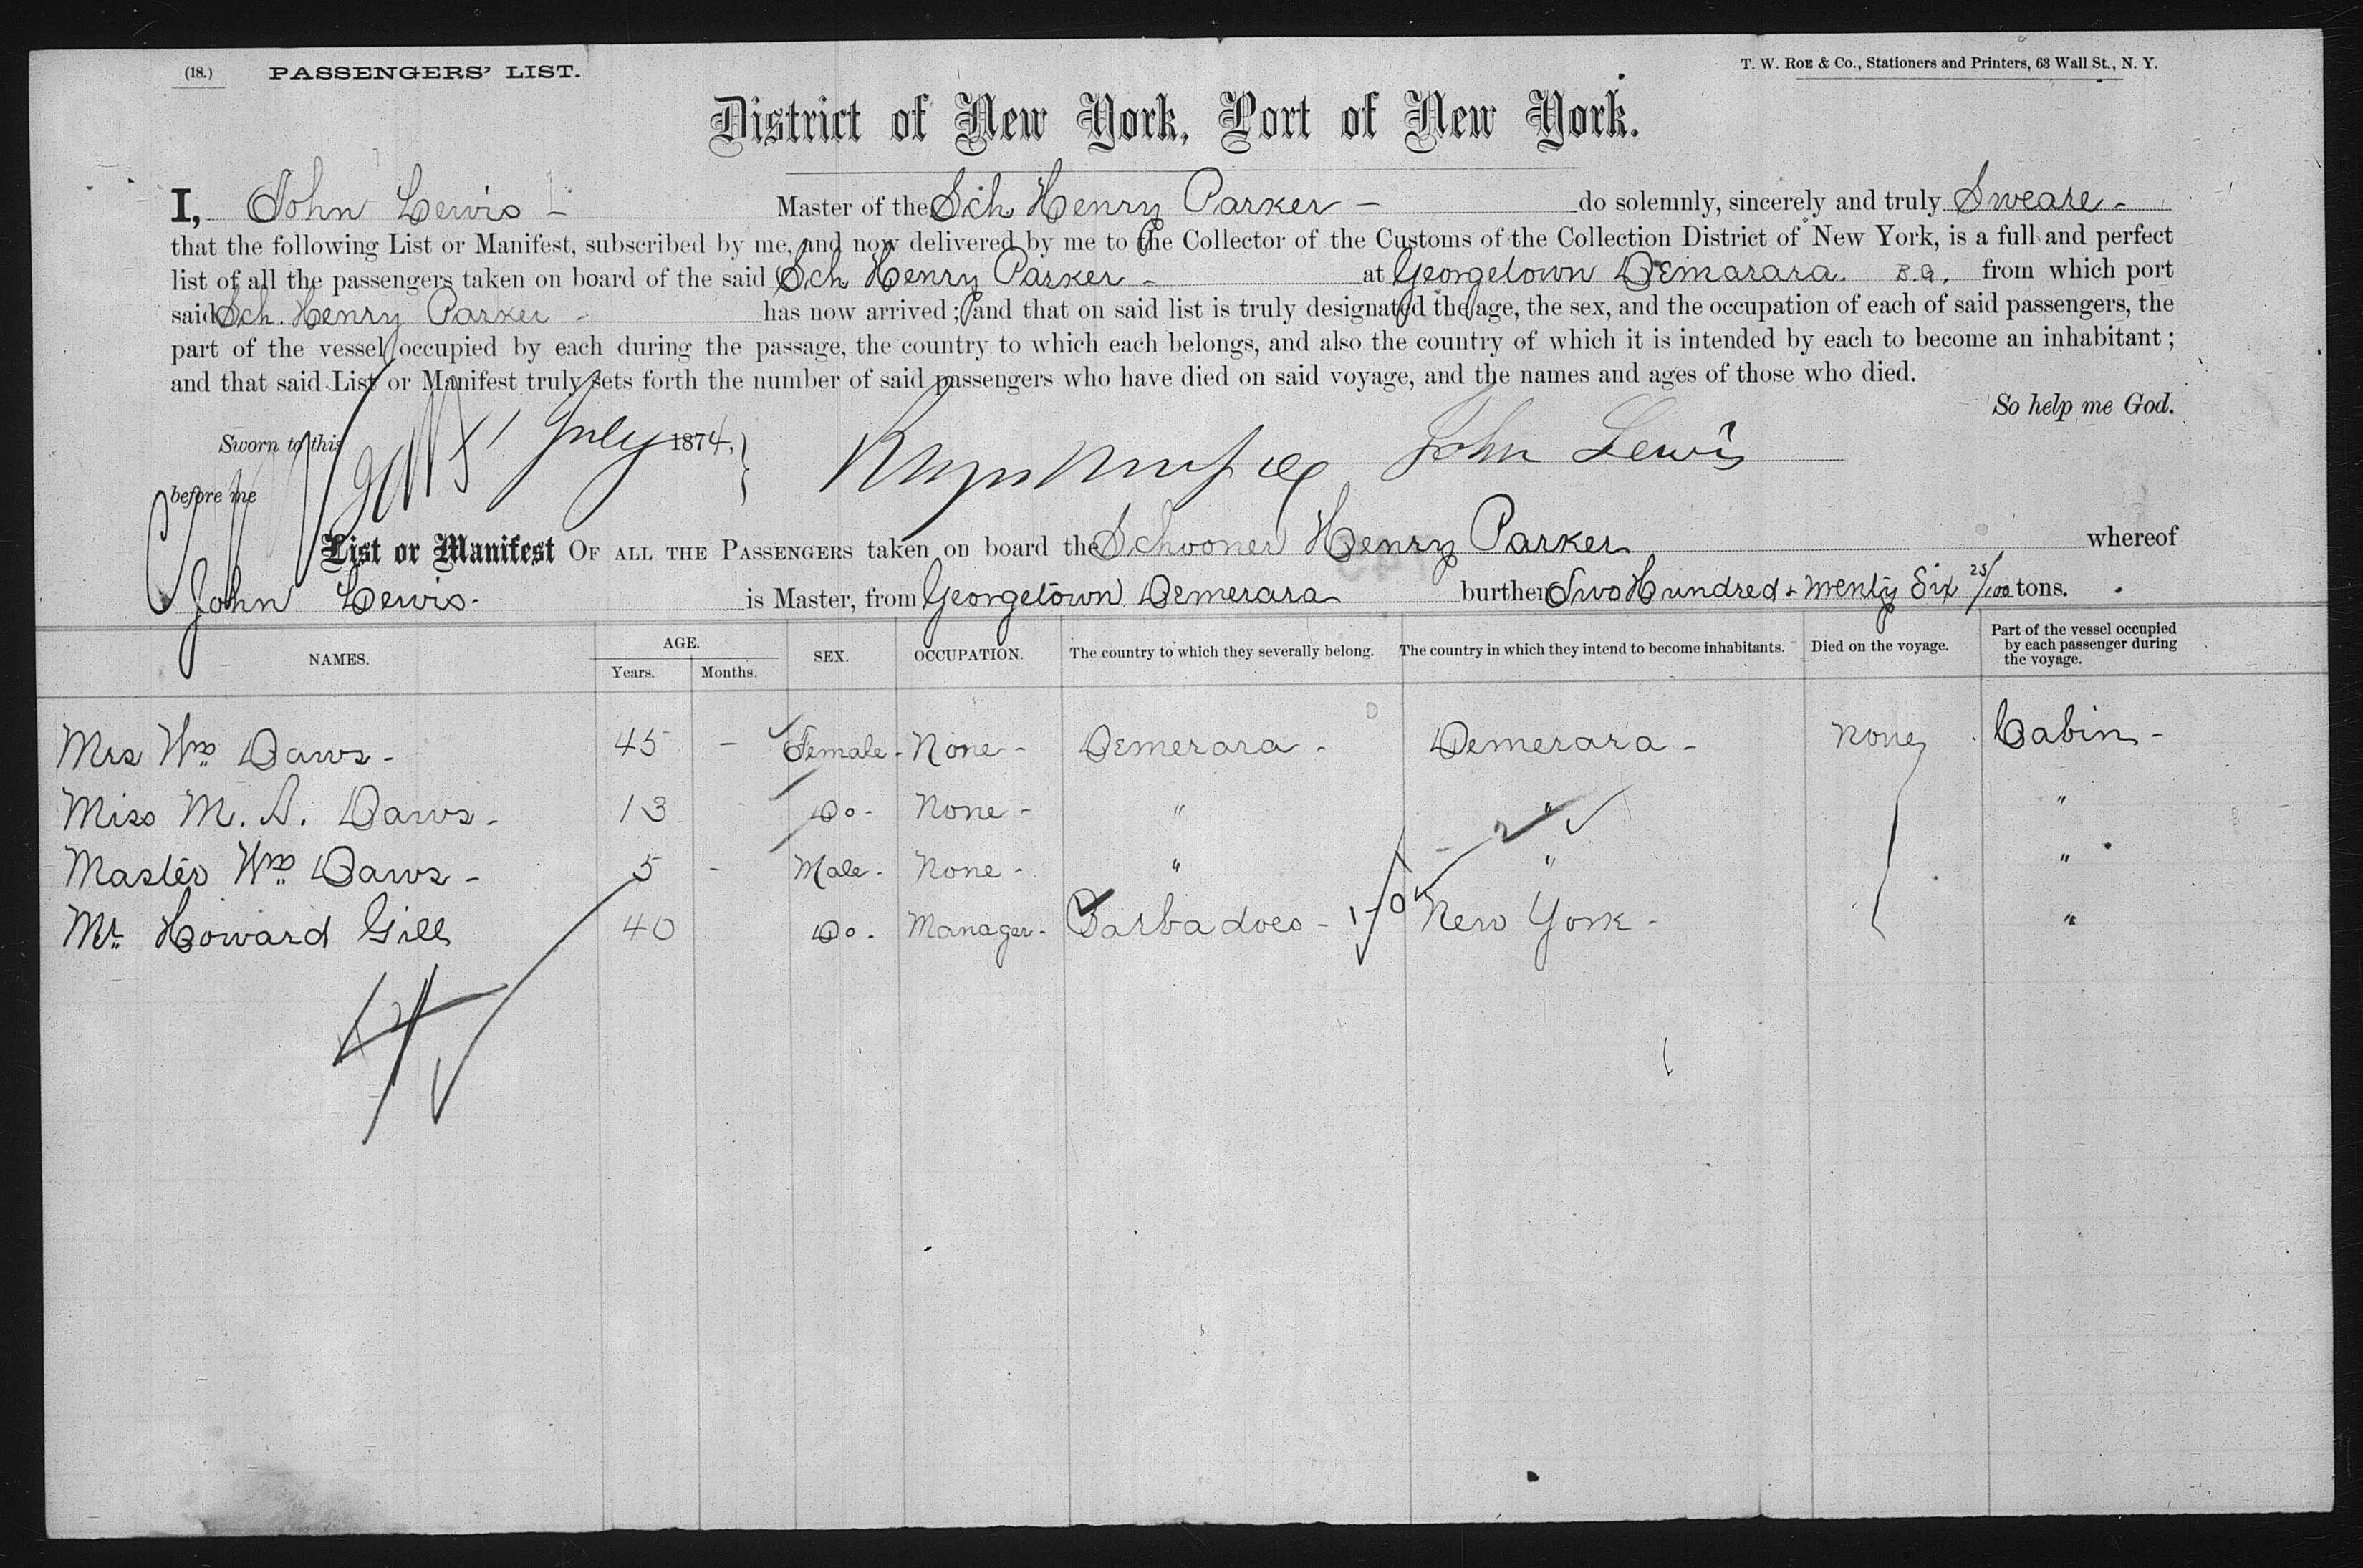 (18.) PASSENGERS' LIST.
T. W. ROE & Co., Stationers and Printers, 63 Wall St., N. Y.
District of New York, Port of New York.
I, John Lewis - Master of the Sch Henry Parker - do solemnly, sincerely and truly Sweare -
that the following List or Manifest, subscribed by me, and now delivered by me to the Collector of the Customs of the Collection District of New York, is a full and perfect
list of all the passengers taken on board of the said Sch Henry Parker - at Georgetown Demarara. B.G. from which port
said Sch. Henry Parker - has now arrived; and that on said list is truly designated the age, the sex, and the occupation of each of said passengers, the
part of the vessel occupied by each during the passage, the country to which each belongs, and also the country of which it is intended by each to become an inhabitant;
and that said List or Manifest truly sets forth the number of said passengers who have died on said voyage, and the names and ages of those who died.
So help me God.
Sworn to this 1 July 1874, John Lewis
before me
List or Manifest OF ALL THE PASSENGERS taken on board the Schooner Henry Parker whereof
John Lewis - is Master, from Georgetown Demerara burthen Two Hundred + Twenty Six 25/100 tons.
NAMES. AGE. Years. Months. SEX. OCCUPATION. The country to which they severally belong. The country in which they intend to become inhabitants. Died on the voyage. Part of the vessel occupied by each passenger during the voyage.
Mrs Wm Daws - 45 - Female - None - Demerara - Demerara - None Cabin -
Miss M. A. Daws - 13 Do - None - " " "
Master Wm Daws - 5 - Male - None - " " "
Mr Howard Gill 40 Do. Manager - Barbadoes - New York - "
4